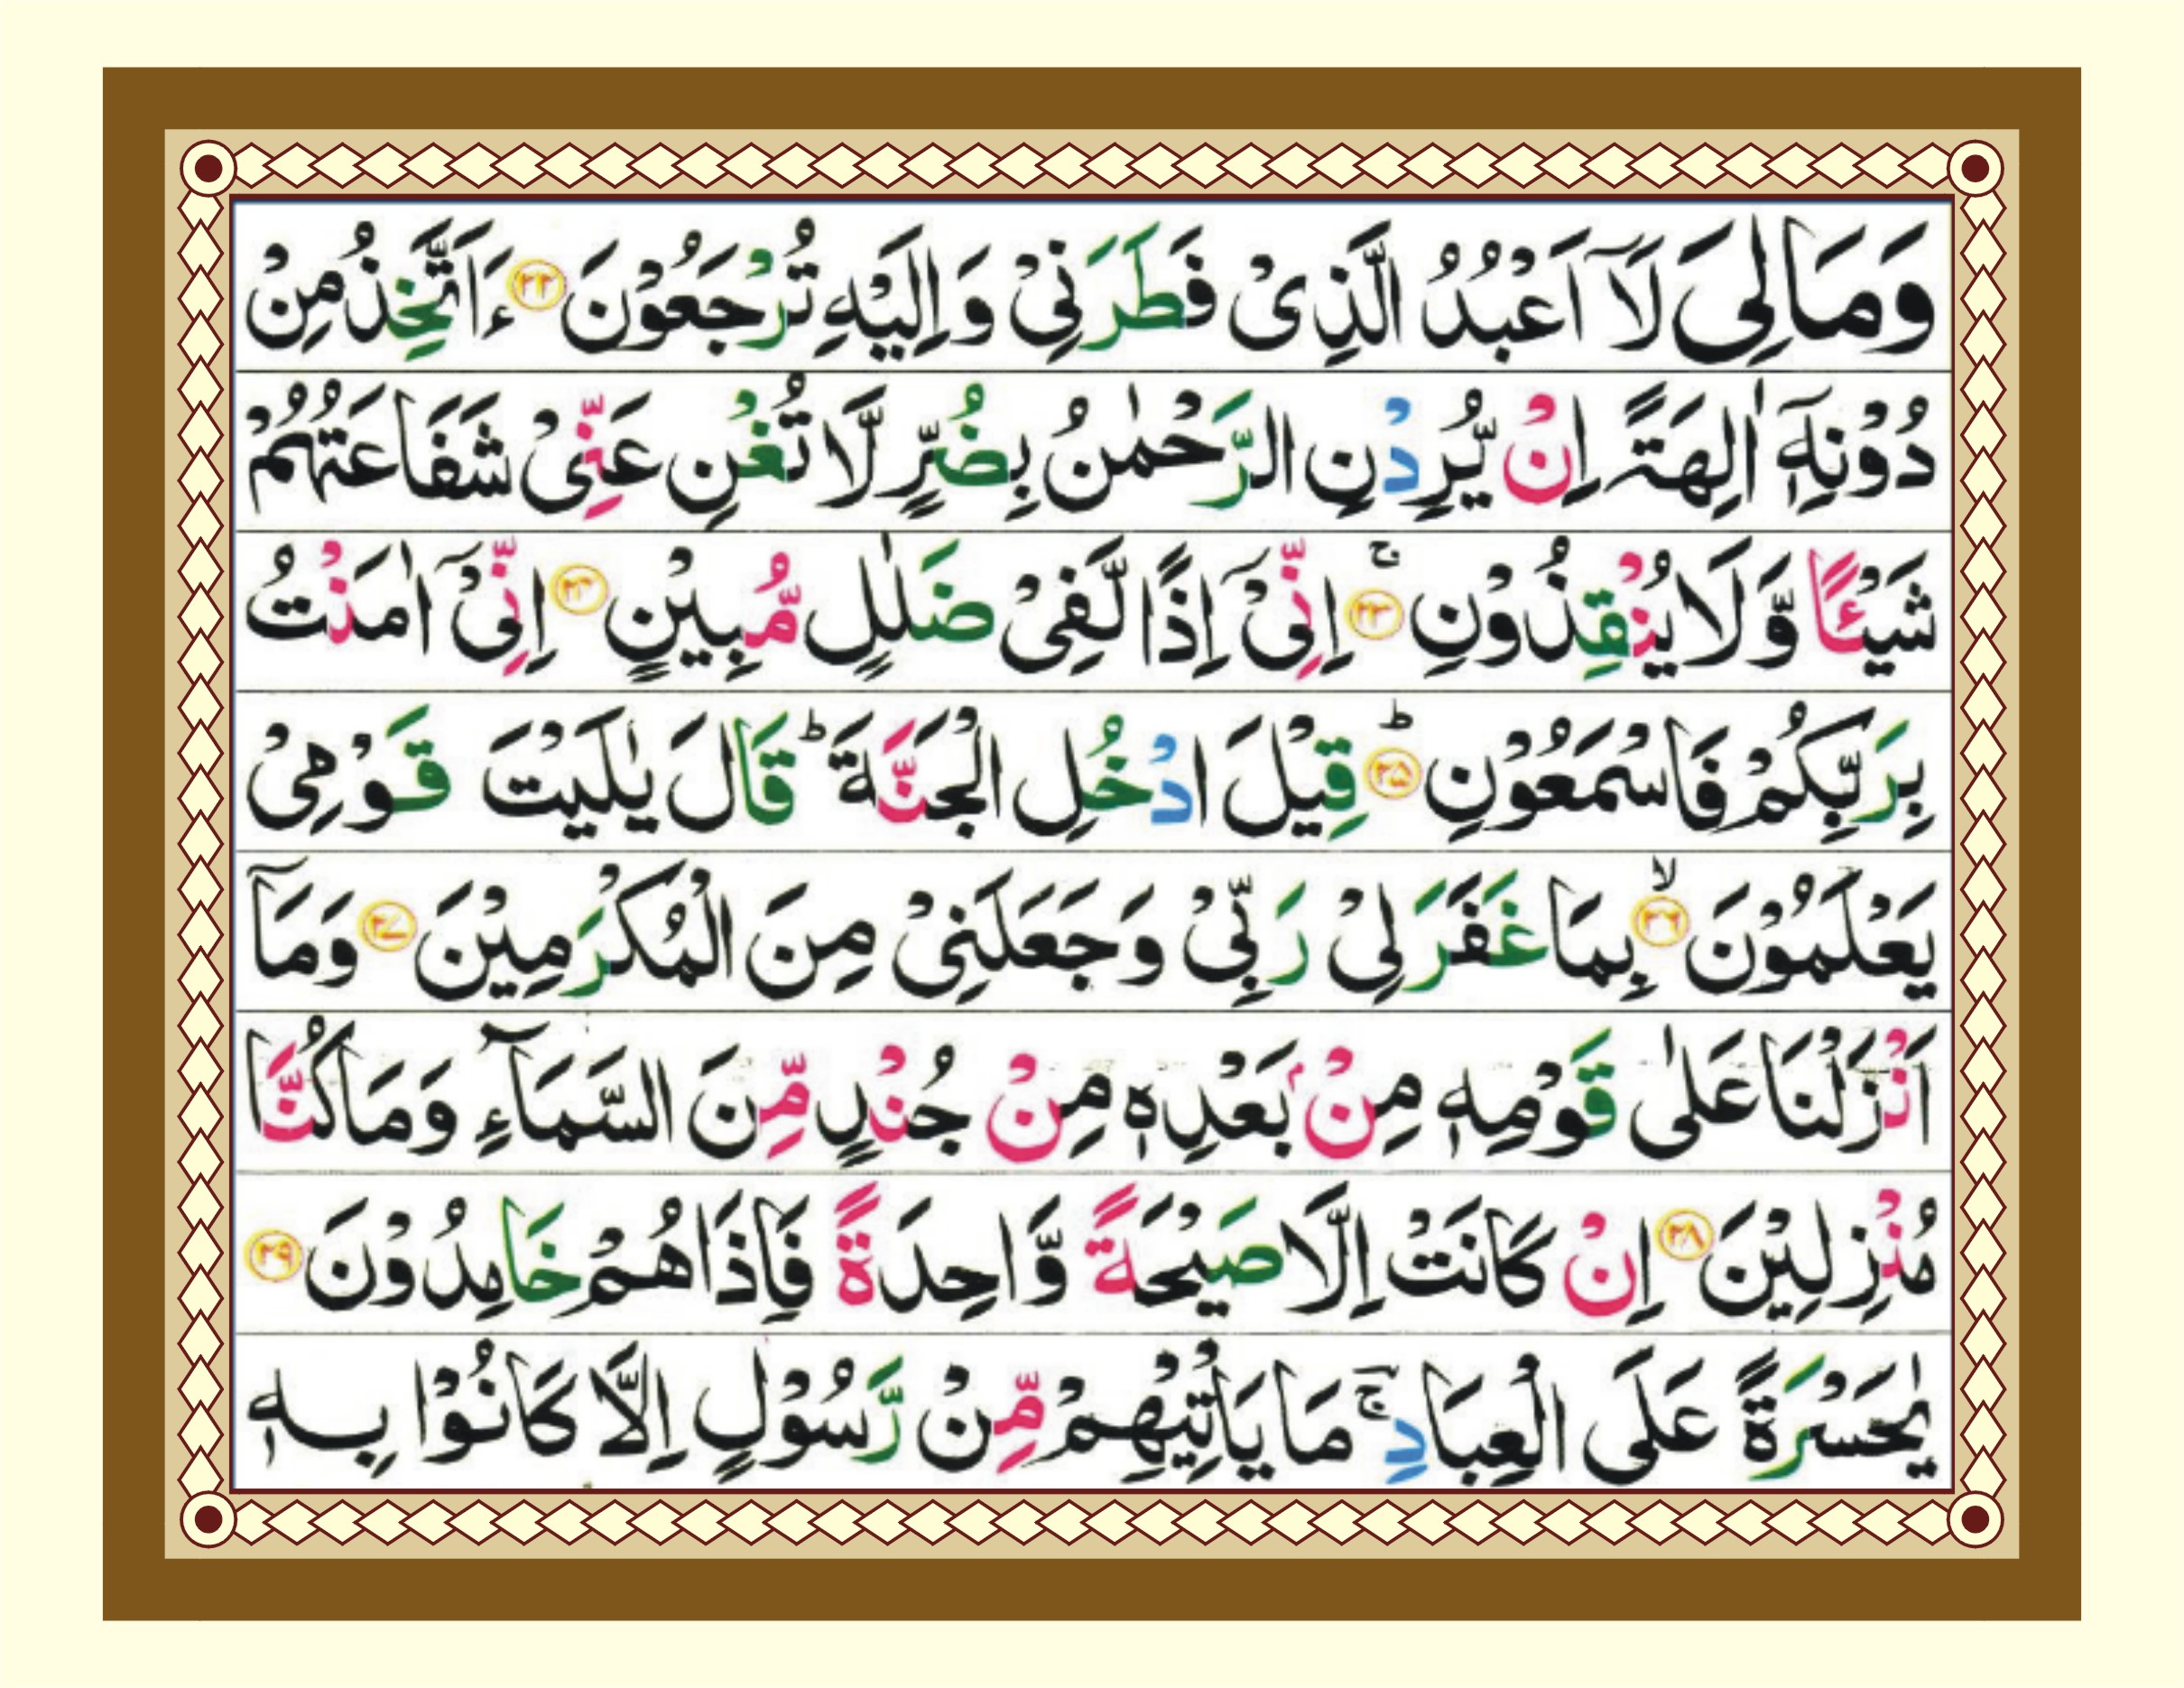 وَمَالِیَ لَاۤ اَعْبُدُ الَّذِیْ فَطَرَنِیْ وَاِلَیْهِ تُرْجَعُوْنَ ﴿۲۲﴾ ءَاَتَّخِذُ مِنْ
دُوْنِهٖۤ اٰلِهَةً اِنْ یُّرِدْنِ الرَّحْمٰنُ بِضُرٍّ لَّا تُغْنِ عَنِّیْ شَفَاعَتُهُمْ
شَیْـًٔا وَّلَا یُنْقِذُوْنِ ۚ﴿۲۳﴾ اِنِّیْۤ اِذًا لَّفِیْ ضَلٰلٍ مُّبِیْنٍ ﴿۲۴﴾ اِنِّیْۤ اٰمَنْتُ
بِرَبِّكُمْ فَاسْمَعُوْنِ ؕ﴿۲۵﴾ قِیْلَ ادْخُلِ الْجَنَّةَ ؕ قَالَ یٰلَیْتَ قَوْمِیْ
یَعْلَمُوْنَ ۙ﴿۲۶﴾ بِمَا غَفَرَ لِیْ رَبِّیْ وَجَعَلَنِیْ مِنَ الْمُكْرَمِیْنَ ﴿۲۷﴾ وَمَاۤ
اَنْزَلْنَا عَلٰی قَوْمِهٖ مِنْۢ بَعْدِهٖ مِنْ جُنْدٍ مِّنَ السَّمَآءِ وَمَا كُنَّا
مُنْزِلِیْنَ ﴿۲۸﴾ اِنْ كَانَتْ اِلَّا صَیْحَةً وَّاحِدَةً فَاِذَا هُمْ خَامِدُوْنَ ﴿۲۹﴾
یٰحَسْرَةً عَلَی الْعِبَادِ ۚؔ مَا یَاْتِیْهِمْ مِّنْ رَّسُوْلٍ اِلَّا كَانُوْا بِهٖ